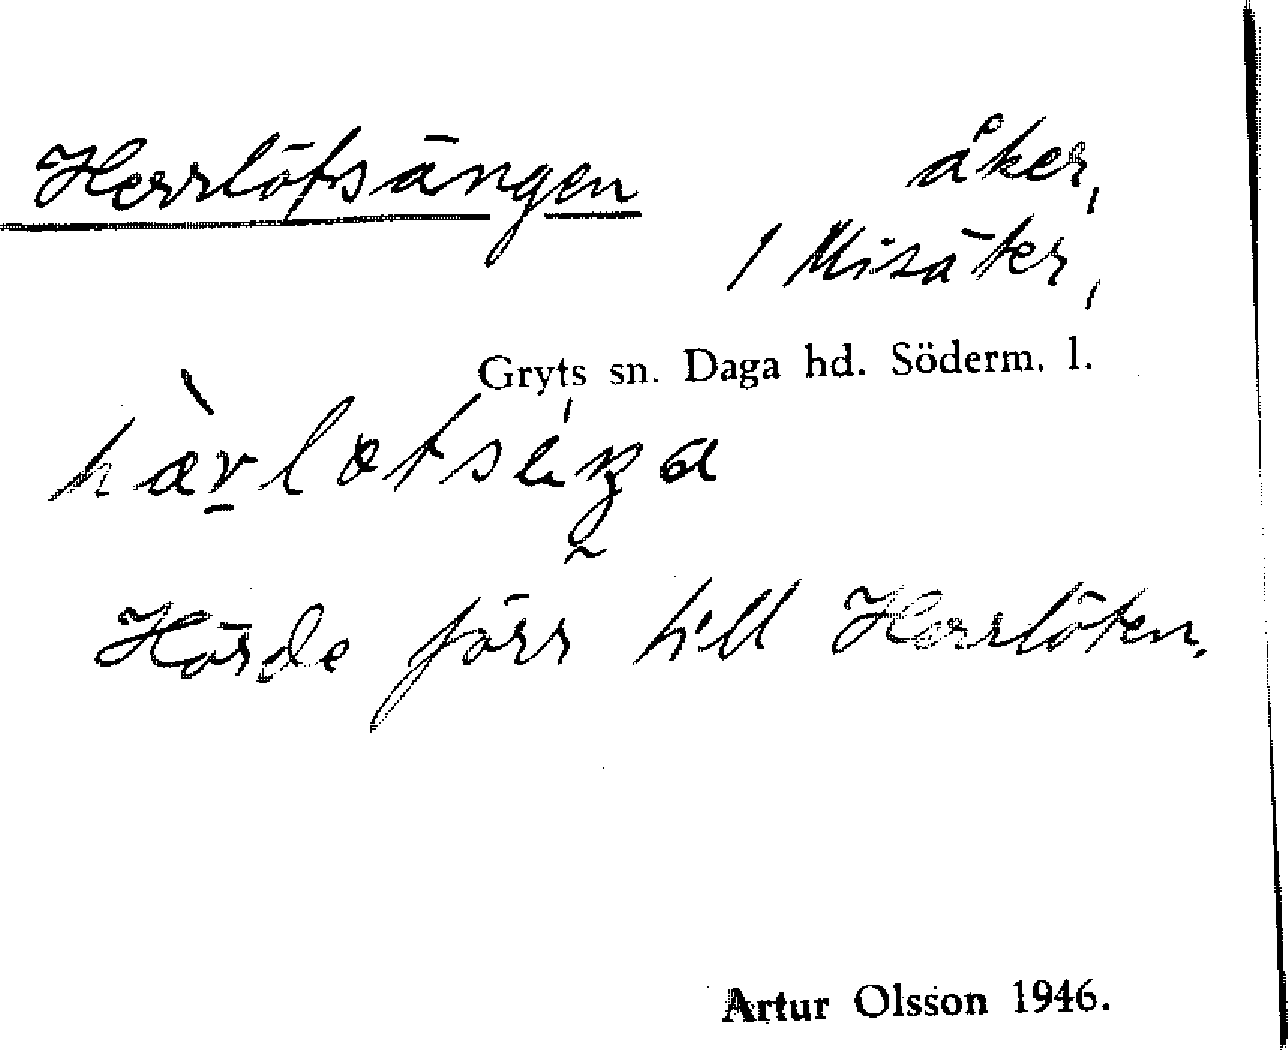 Herrlötsängen
åker,
1 Misäter,
Gryts sn. Daga hd. Söderm. l.
Hörde förr till Herrlöten.
Artur Olsson 1946.